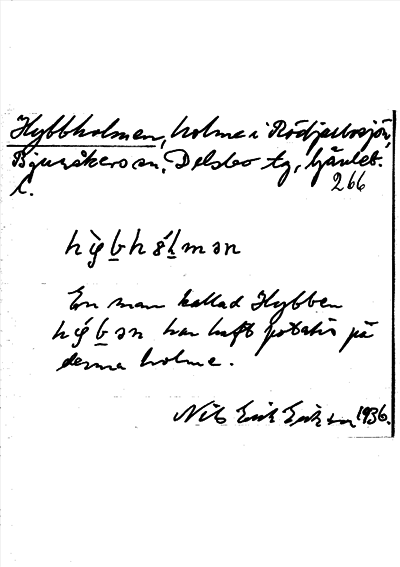 Hybbholmen, holme i Rödjebosjön,
Bjuråkers sn, Delsbo tg, Gävleb.
l. 266
hy̌bhólmən
En man kallad Hybben
hýbən har haft potatis på
denna holme.
Nils Erik Eriksson 1936.